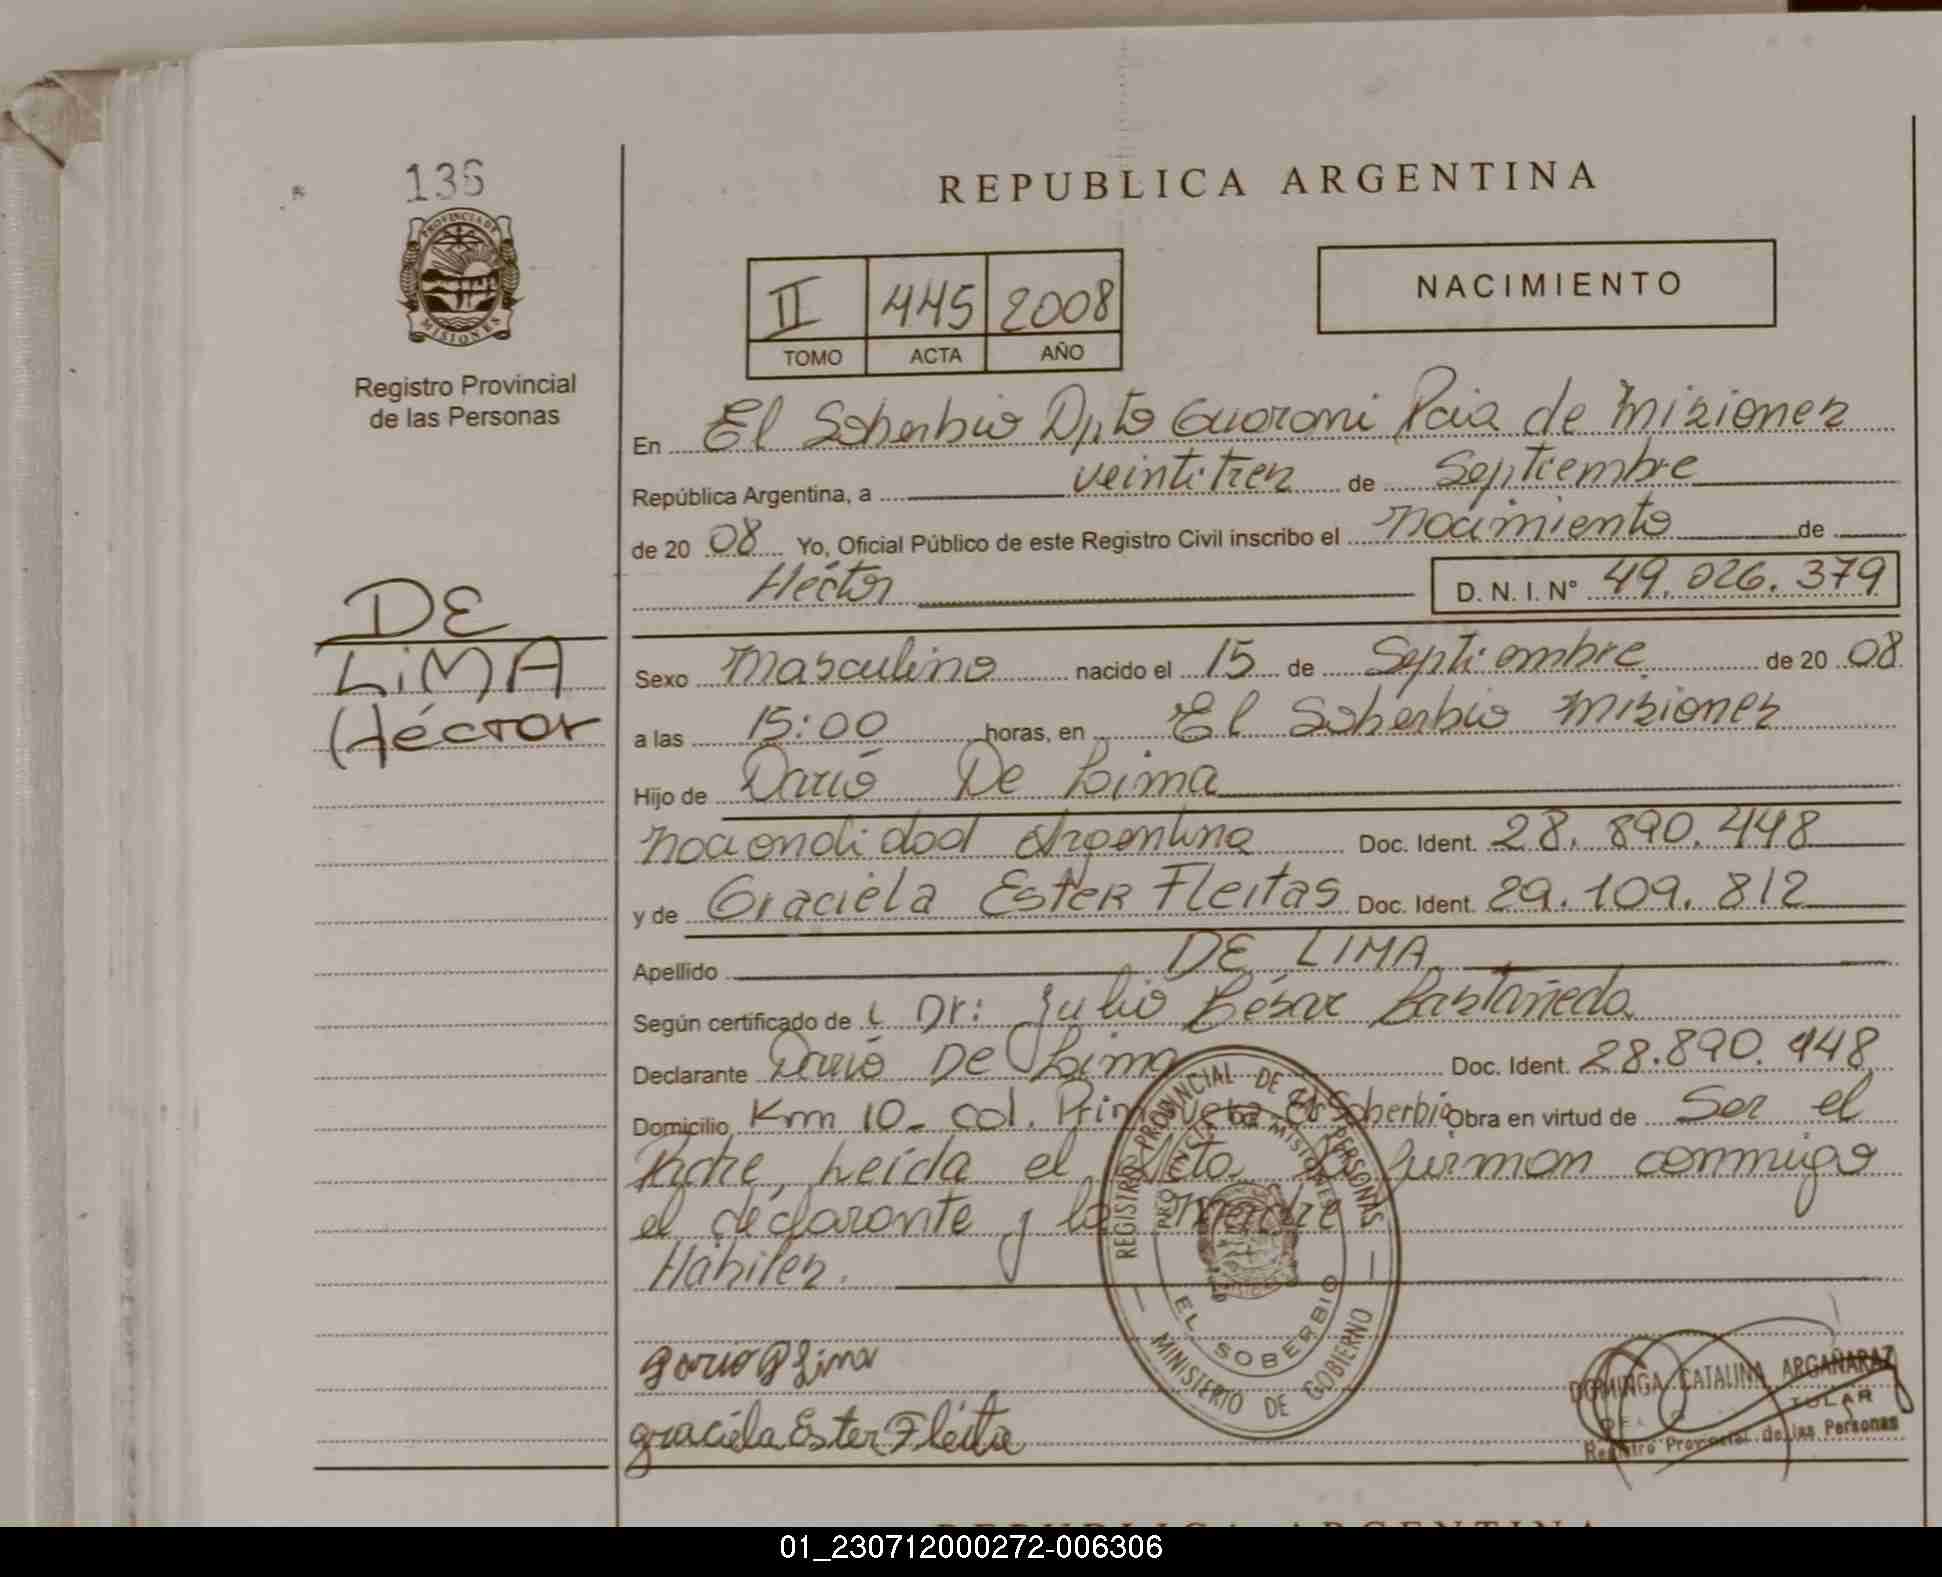 136
PROVINCIA DE
MISIONES
Registro Provincial
de las Personas
REPUBLICA ARGENTINA
II 445 2008
TOMO ACTA AÑO
NACIMIENTO
En El Soberbio Dpto Guarani Pcia de Misiones
República Argentina, a veintitres de Septiembre
de 20 08 Yo, Oficial Público de este Registro Civil inscribo el nacimiento de
Héctor D. N. I. N° 49.026.379
DE
LiMA
(Héctor
Sexo Masculino nacido el 15 de Septiembre de 20 08
a las 15:00 horas, en El Soberbio Misiones
Hijo de Darió De Lima
nacionalidad Argentina Doc. Ident. 28.890.448
y de Graciela Ester Fleitas Doc. Ident. 29.109.812
Apellido DE LIMA
Según certificado de Dr: Julio César Castañeda
Declarante Darió De Lima Doc. Ident. 28.890.448
Domicilio Km 10_ col. Primavera El Soberbio Obra en virtud de Ser el
Padre, Leída el Acta, la firman conmigo
el declarante y la madre
Habiles.
REGISTRO PROVINCIAL DE LAS PERSONAS
PROVINCIA DE MISIONES
EL SOBERBIO
MINISTERIO DE GOBIERNO
Dario D Lima
graciela Ester Fleita
DOMINGA CATALINA ARGAÑARAZ
Registro Provincial de las Personas
REPUBLICA ARGENTINA
01_230712000272-006306